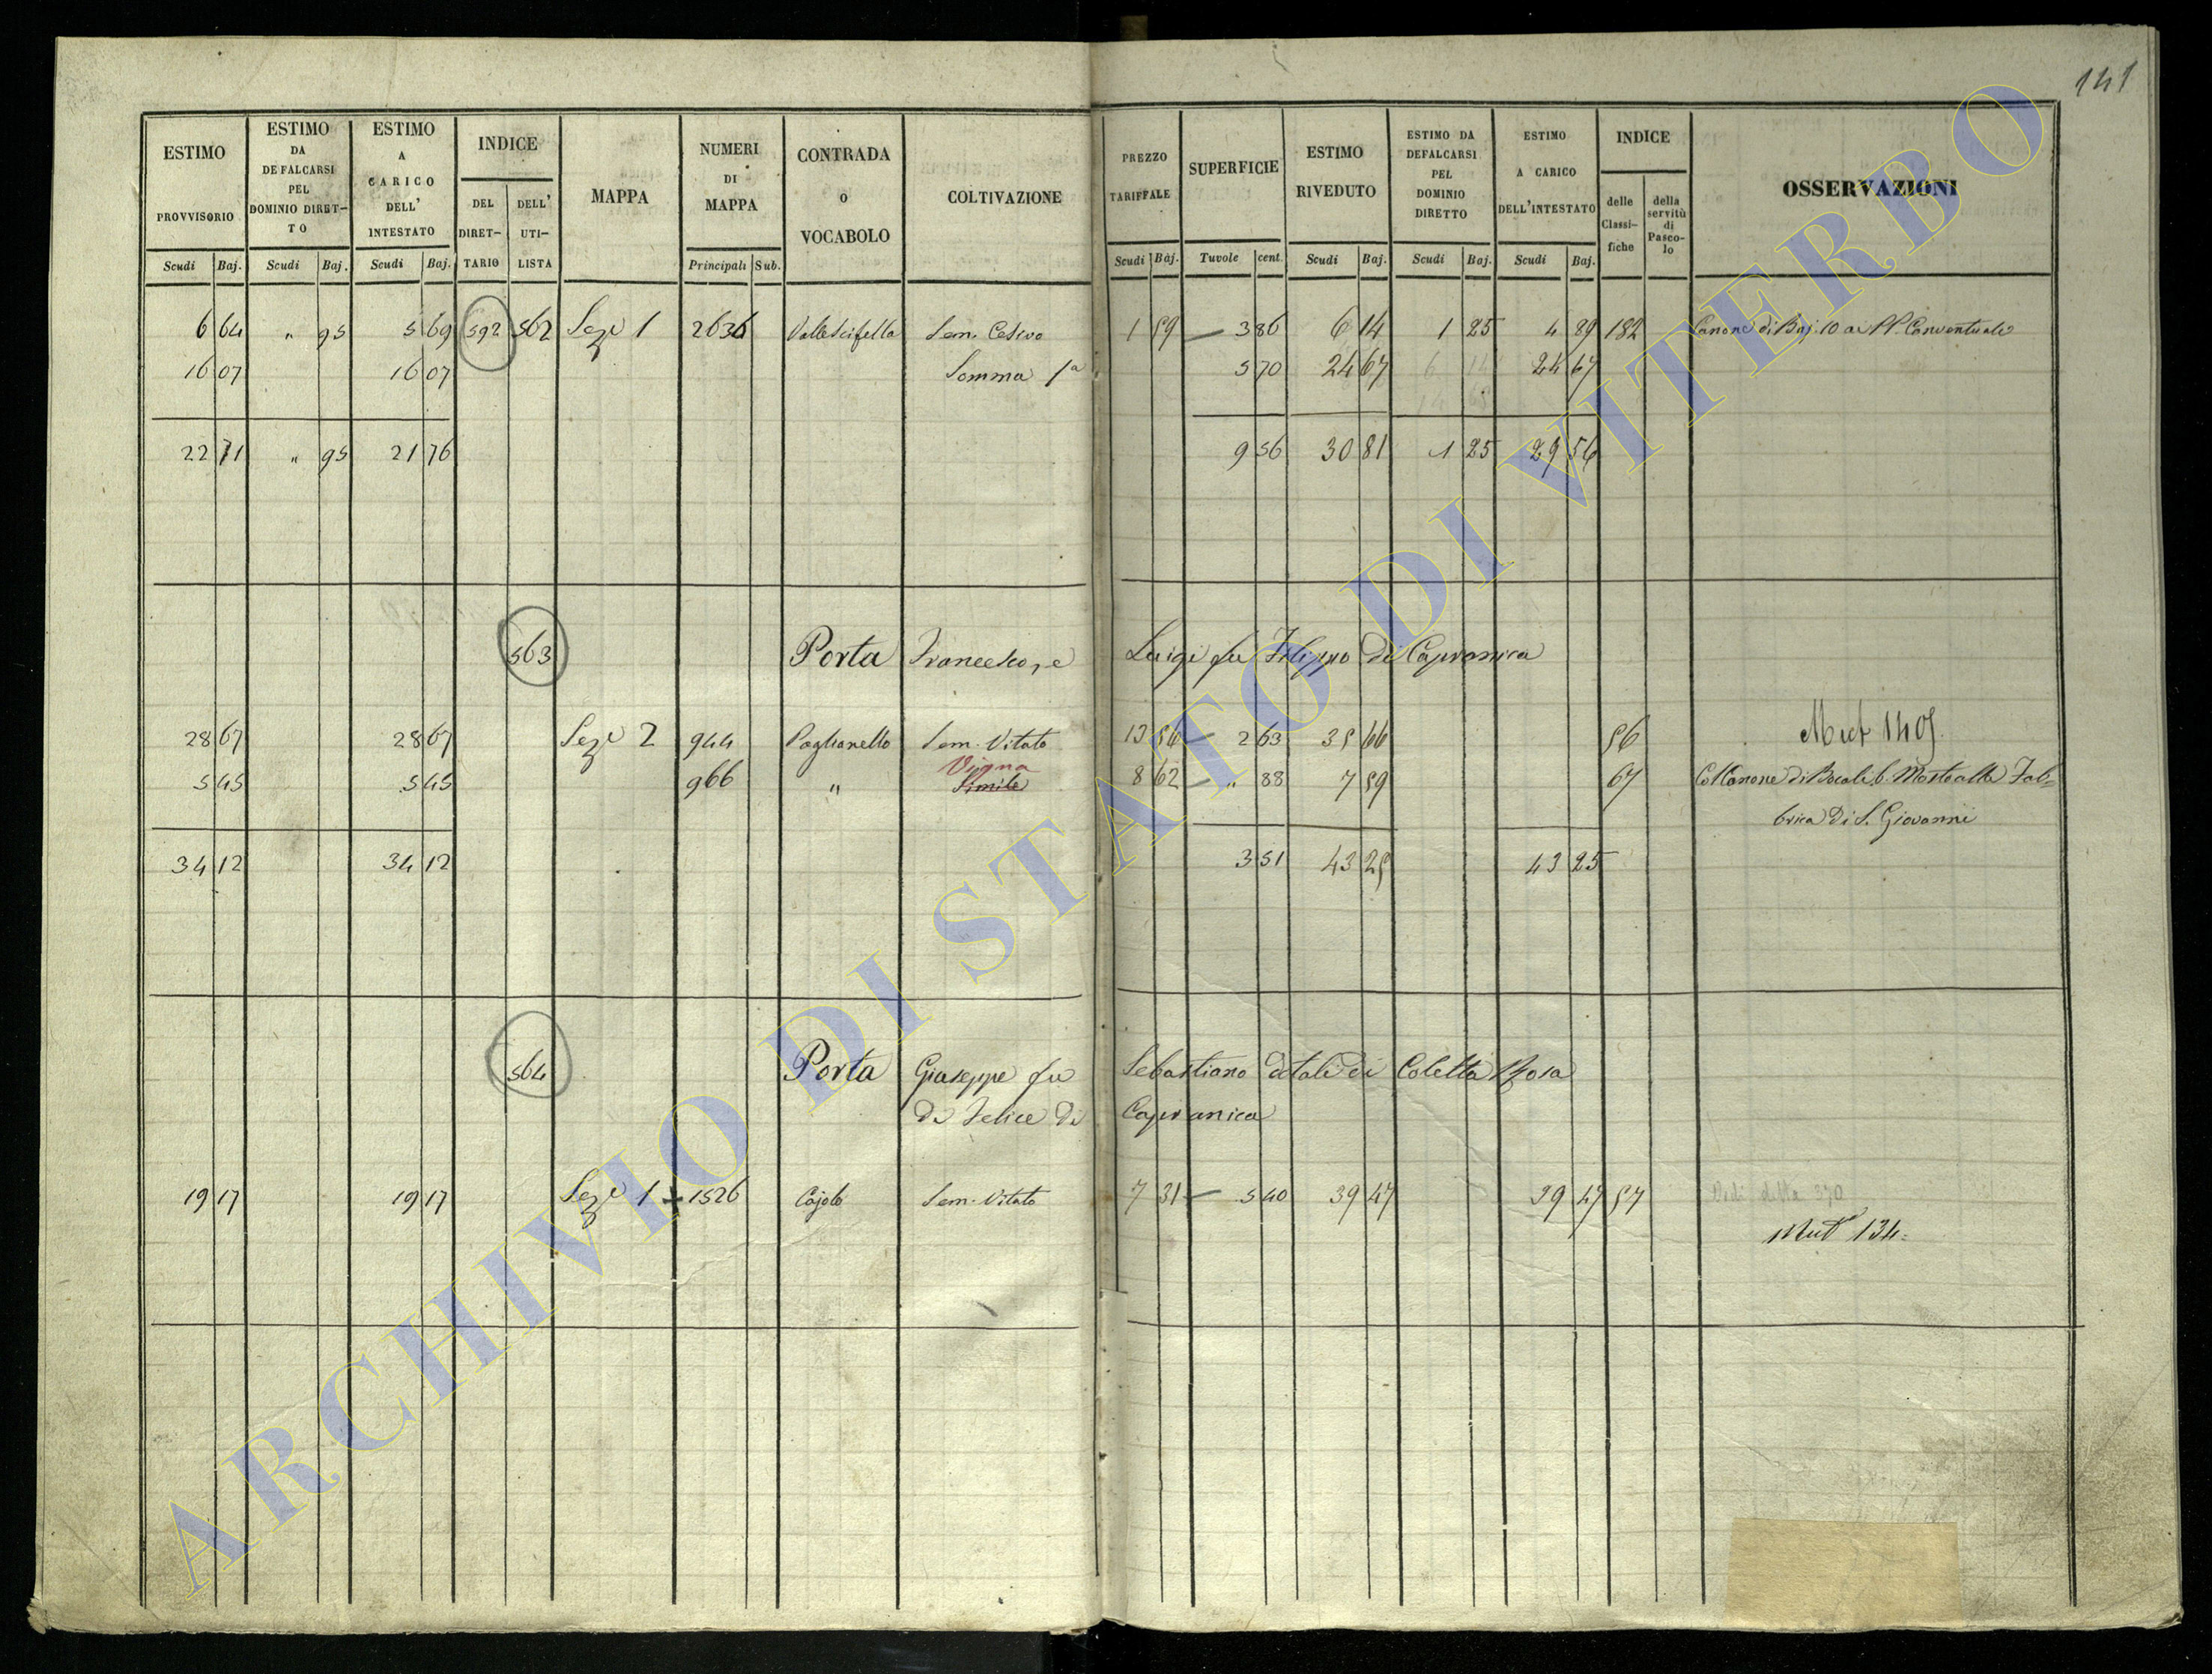 141
ESTIMO PROVVISORIO Scudi Baj.
ESTIMO DA DEFALCARSI PEL DOMINIO DIRET-TO Scudi Baj.
ESTIMO A CARICO DELL' INTESTATO Scudi Baj.
INDICE DEL DIRET-TARIO DELL' UTI-LISTA
MAPPA
NUMERI DI MAPPA Principali Sub.
CONTRADA o VOCABOLO
COLTIVAZIONE
PREZZO TARIFFALE Scudi Baj.
SUPERFICIE Tuvole cent.
ESTIMO RIVEDUTO Scudi Baj.
ESTIMO DA DEFALCARSI PEL DOMINIO DIRETTO Scudi Baj.
ESTIMO A CARICO DELL'INTESTATO Scudi Baj.
INDICE delle Classi-fiche della servitù di Pasco-lo
OSSERVAZIONI
6 64 " 95 5 69 592 562 Seze 1 2636 Vallescifella Sem. Cesivo 1 59 3 86 6 14 1 25 4 89 182 Canone di Baj. 10 ai PP. Conventuali
16 07 16 07 Somma 1a 5 70 24 67 24 67
22 71 " 95 21 76 9 56 30 81 1 25 29 56
563 Porta Francesco, e Luigi fu Filippo di Capranica
28 67 28 67 Seze 2 944 Paglianello Sem. Vitato 13 56 2 63 35 66 56 Mut 140
Vigna
5 45 5 45 966 " Simile 8 62 " 88 7 59 67 Col Canone di Bocali 6. Mosto alla Fab=
brica di S. Giovanni
34 12 34 12 3 51 43 25 43 25
564 Porta Giuseppe fu Sebastiano dotali di Coletta Rosa
di Felice di Capranica
19 17 19 17 Seze 1 + 1526 Cajolo Sem. Vitato 7 31 5 40 39 47 39 47 57 Vedi detta 370
Mut 134.
ARCHIVIO DI STATO DI VITERBO